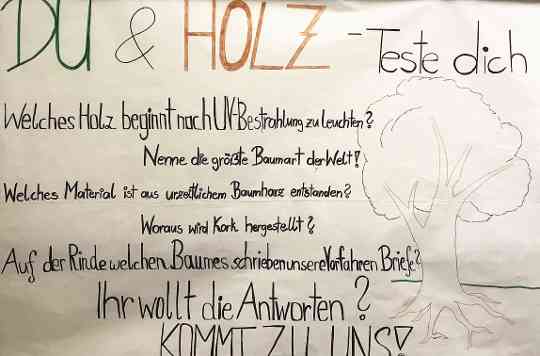 DU & HOLZ - Teste dich
Welches Holz beginnt nach UV-Bestrahlung zu leuchten?
Nenne die größte Baumart der Welt!
Welches Material ist aus urzeitlichem Baumharz entstanden?
Woraus wird Kork hergestellt?
Auf der Rinde welchen Baumes schrieben unsere Vorfahren Briefe?
Ihr wollt die Antworten?
KOMMT ZU UNS!